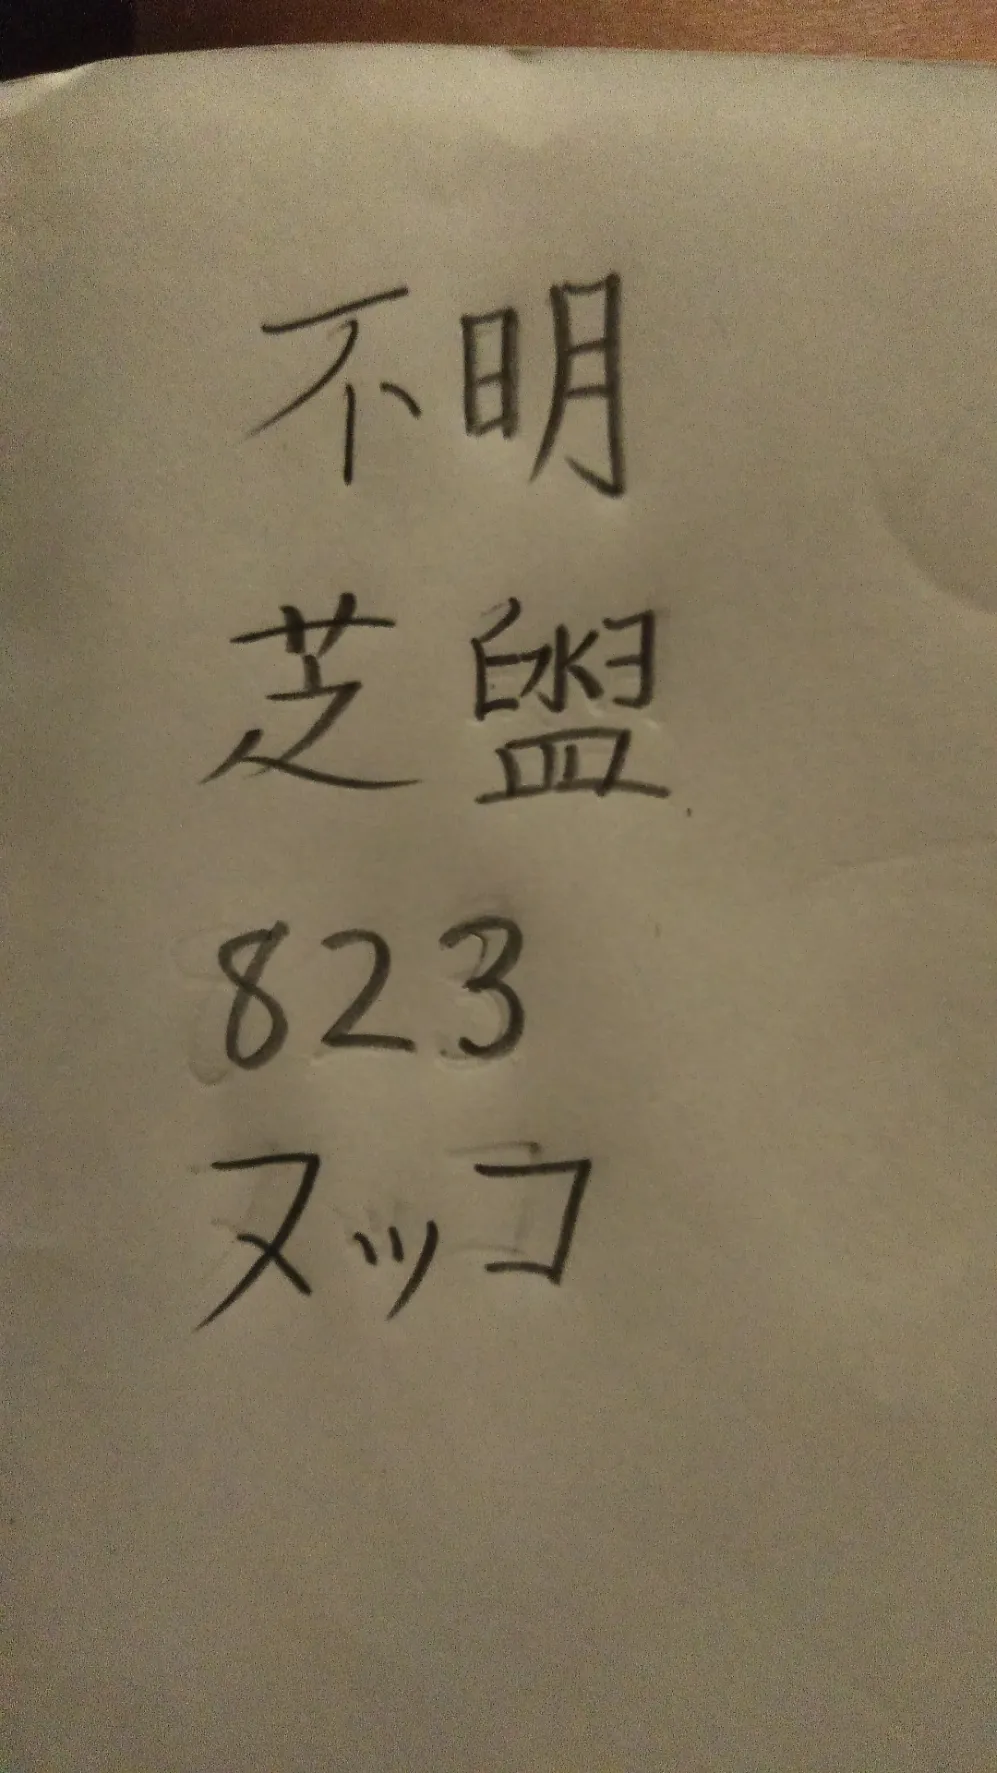 不明
芝盥
823
ヌッコ